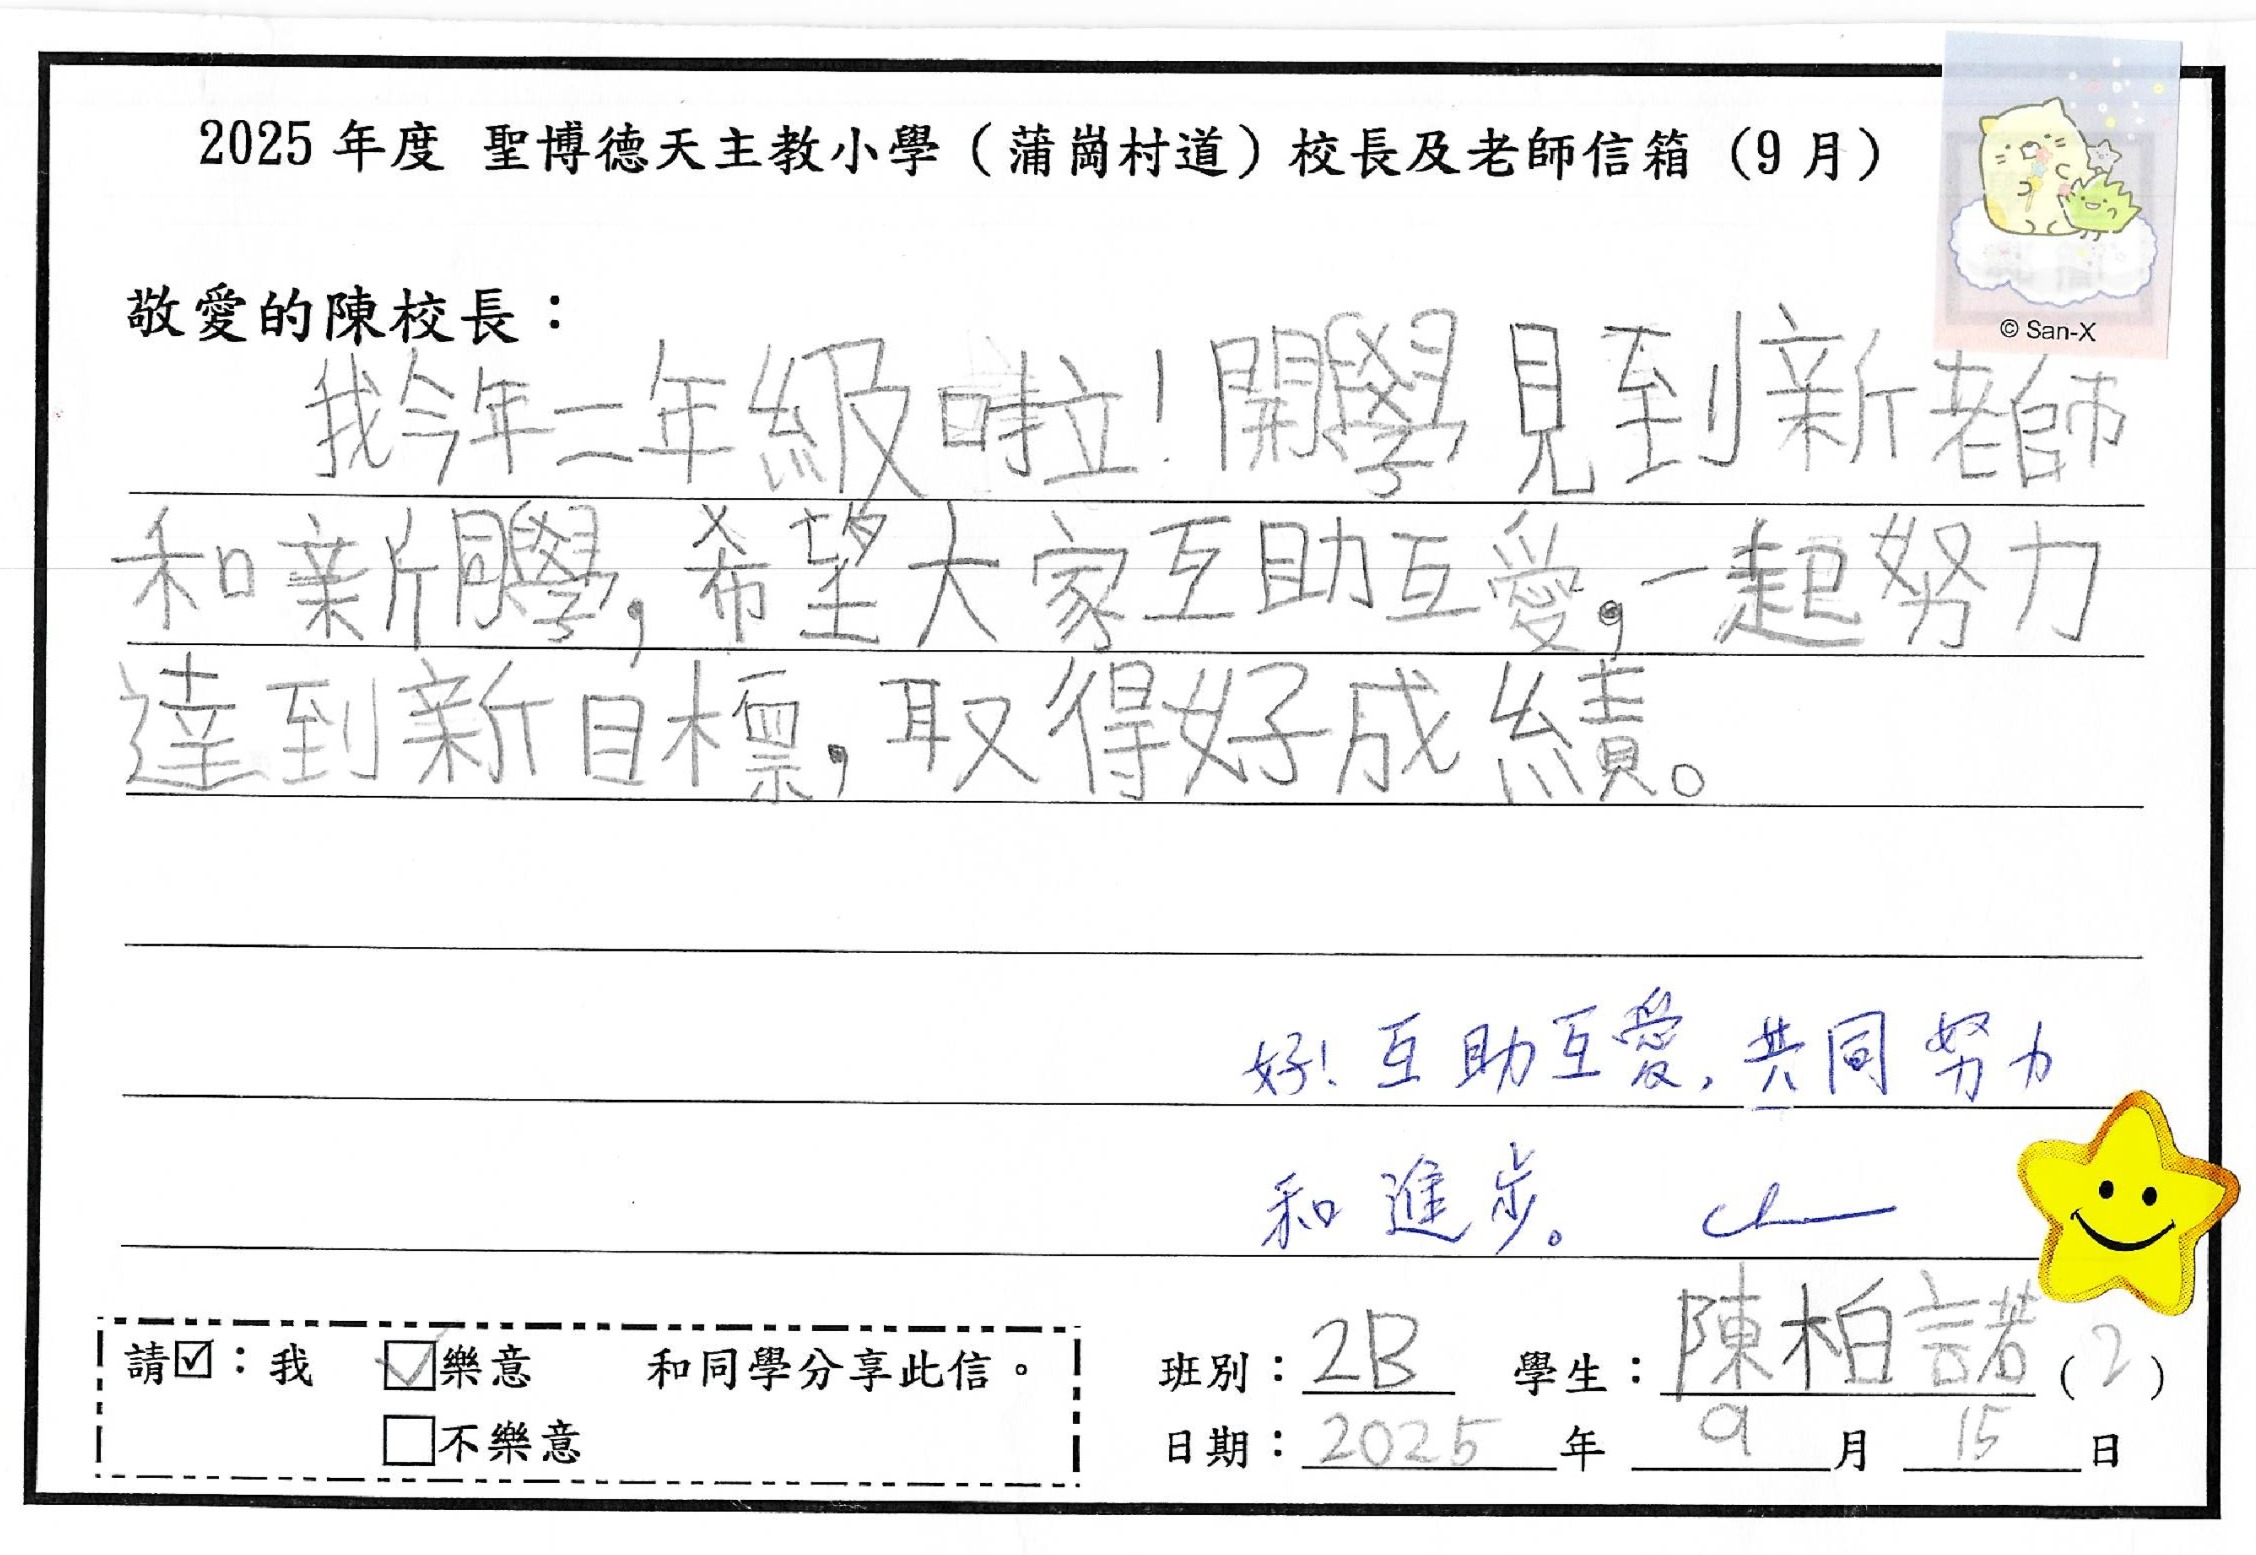 2025 年度 聖博德天主教小學（蒲崗村道）校長及老師信箱（9月）
© San-X
敬愛的陳校長：
我今年二年級啦！開學見到新老師
和新同學，希望大家互助互愛，一起努力
達到新目標，取得好成績。
好！互助互愛，共同努力
和進步。
請☑：我 ☑樂意 和同學分享此信。
□不樂意
班別：2B 學生：陳柏諾(2)
日期：2025年9月15日